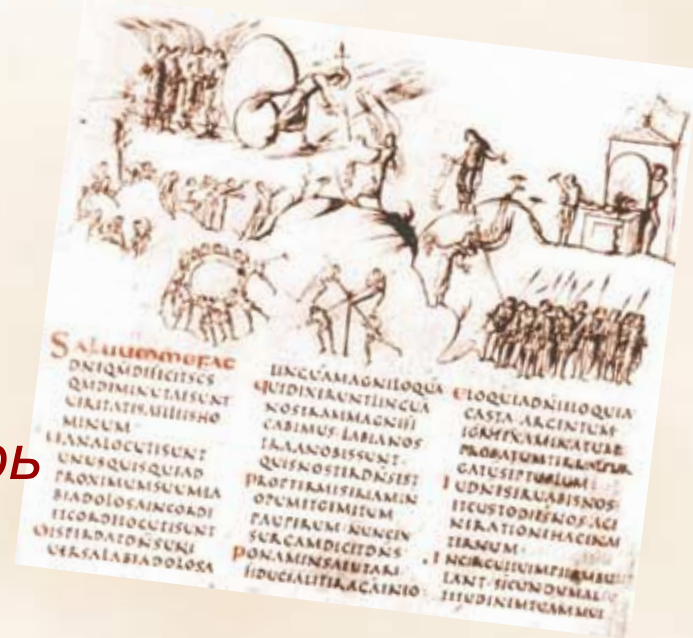 SALUUMMEFAC
DNEQMDEFECITSCS
QMDIMINUTAESUNT
UERITATESAFILIISHO
MINUM·
UANALOCUTISUNT
UNUSQUISQUEAD
PROXIMUMSUUMLA
BIADOLOSAINCORDE
ETCORDELOCUTISUNT
DISPERDATDNSUNI
UERSALABIADOLOSA
LINGUAMAGNILOQUA
QUIDIXERUNTLINGUA
NOSTRAMMAGNIFI
CABIMUS·LABIANOS
TRAANOBISSUNT·
QUISNOSTERDNSEST
PROPTERMISERIAMIN
OPUMETGEMITUM
PAUPERUM·NUNCEX
SURGAMDICITDNS
PONAMINSALUTARI
FIDUCIALITERAGAINEO
ELOQUIADNIELOQUIA
CASTA·ARGENTUM
IGNEEXAMINATUM
PROBATUMTERRAEPUR
GATUSEPTUPLUM
TUDNESERUABISNOS
ETCUSTODIESNOSAGE
NERATIONEHACINAE
TERNUM·
INCIRCUITUIMPIIAMBU
LANT·SECUNDUMALTI